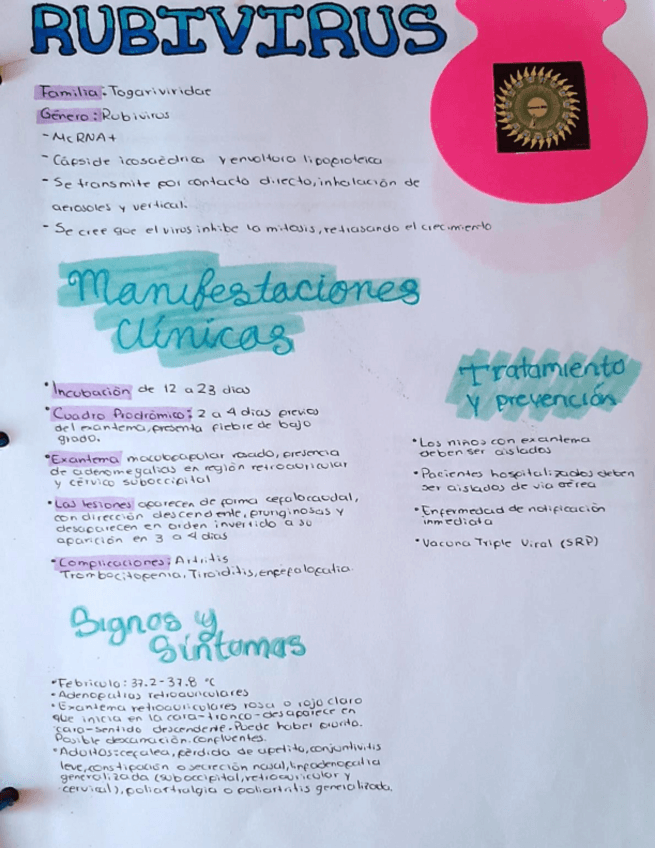 RUBIVIRUS
Familia: Togariviridae
Género: Rubivirus
- McRNA+
- Cápside icosaédrica y envoltora lipoproteica
- Se transmite por contacto directo, inhalación de
aerosoles y vertical.
- Se cree que el virus inhibe la mitosis, retrasando el crecimiento
Manifestaciones
Clínicas
• Incubación de 12 a 23 dias
• Cuadro Prodrómico: 2 a 4 dias previos
del exantema, presenta fiebre de bajo
grado.
• Exantema maculopapular rosado, presencia
de adenomegalias en región retroauricular
y cérvico suboccipital
• Las lesiones aparecen de forma cefalocaudal,
con dirección descendente, pruriginosas y
desaparecen en orden invertido a su
aparición en 3 a 4 dias
• Complicaciones: Artritis
Trombocitopenia, Tiroiditis, encefalopatia.
Tratamiento
y prevención
• Los niños con exantema
deben ser aislados
• Pacientes hospitalizados deben
ser aislados de via aérea
• Enfermedad de notificación
inmediata
• Vacuna Triple Viral (SRP)
Signos y
Síntomas
• Febricula: 37.2 - 37.8 °C
• Adenopatias retroauriculares
• Exantema retroauriculares rosa o rojo claro
que inicia en la cara-tronco-desaparece en
cara-sentido descendente. Puede haber prurito.
Posible descamación. confluentes.
• Adultos: cefalea, pérdida de apetito, conjuntivitis
leve, constipación o secreción nasal, linfadenopatia
generalizada (suboccipital, retroauricular y
cervical), poliartralgia o poliartritis generalizada.